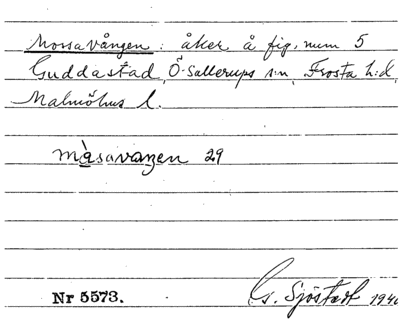 Mossavången: åker å fig. num 5
Guddastad, Ö-Sallerups sn, Frosta h:d,
Malmöhus l.
måsavaŋen 29
Nr 5573. G. Sjöstedt 1940